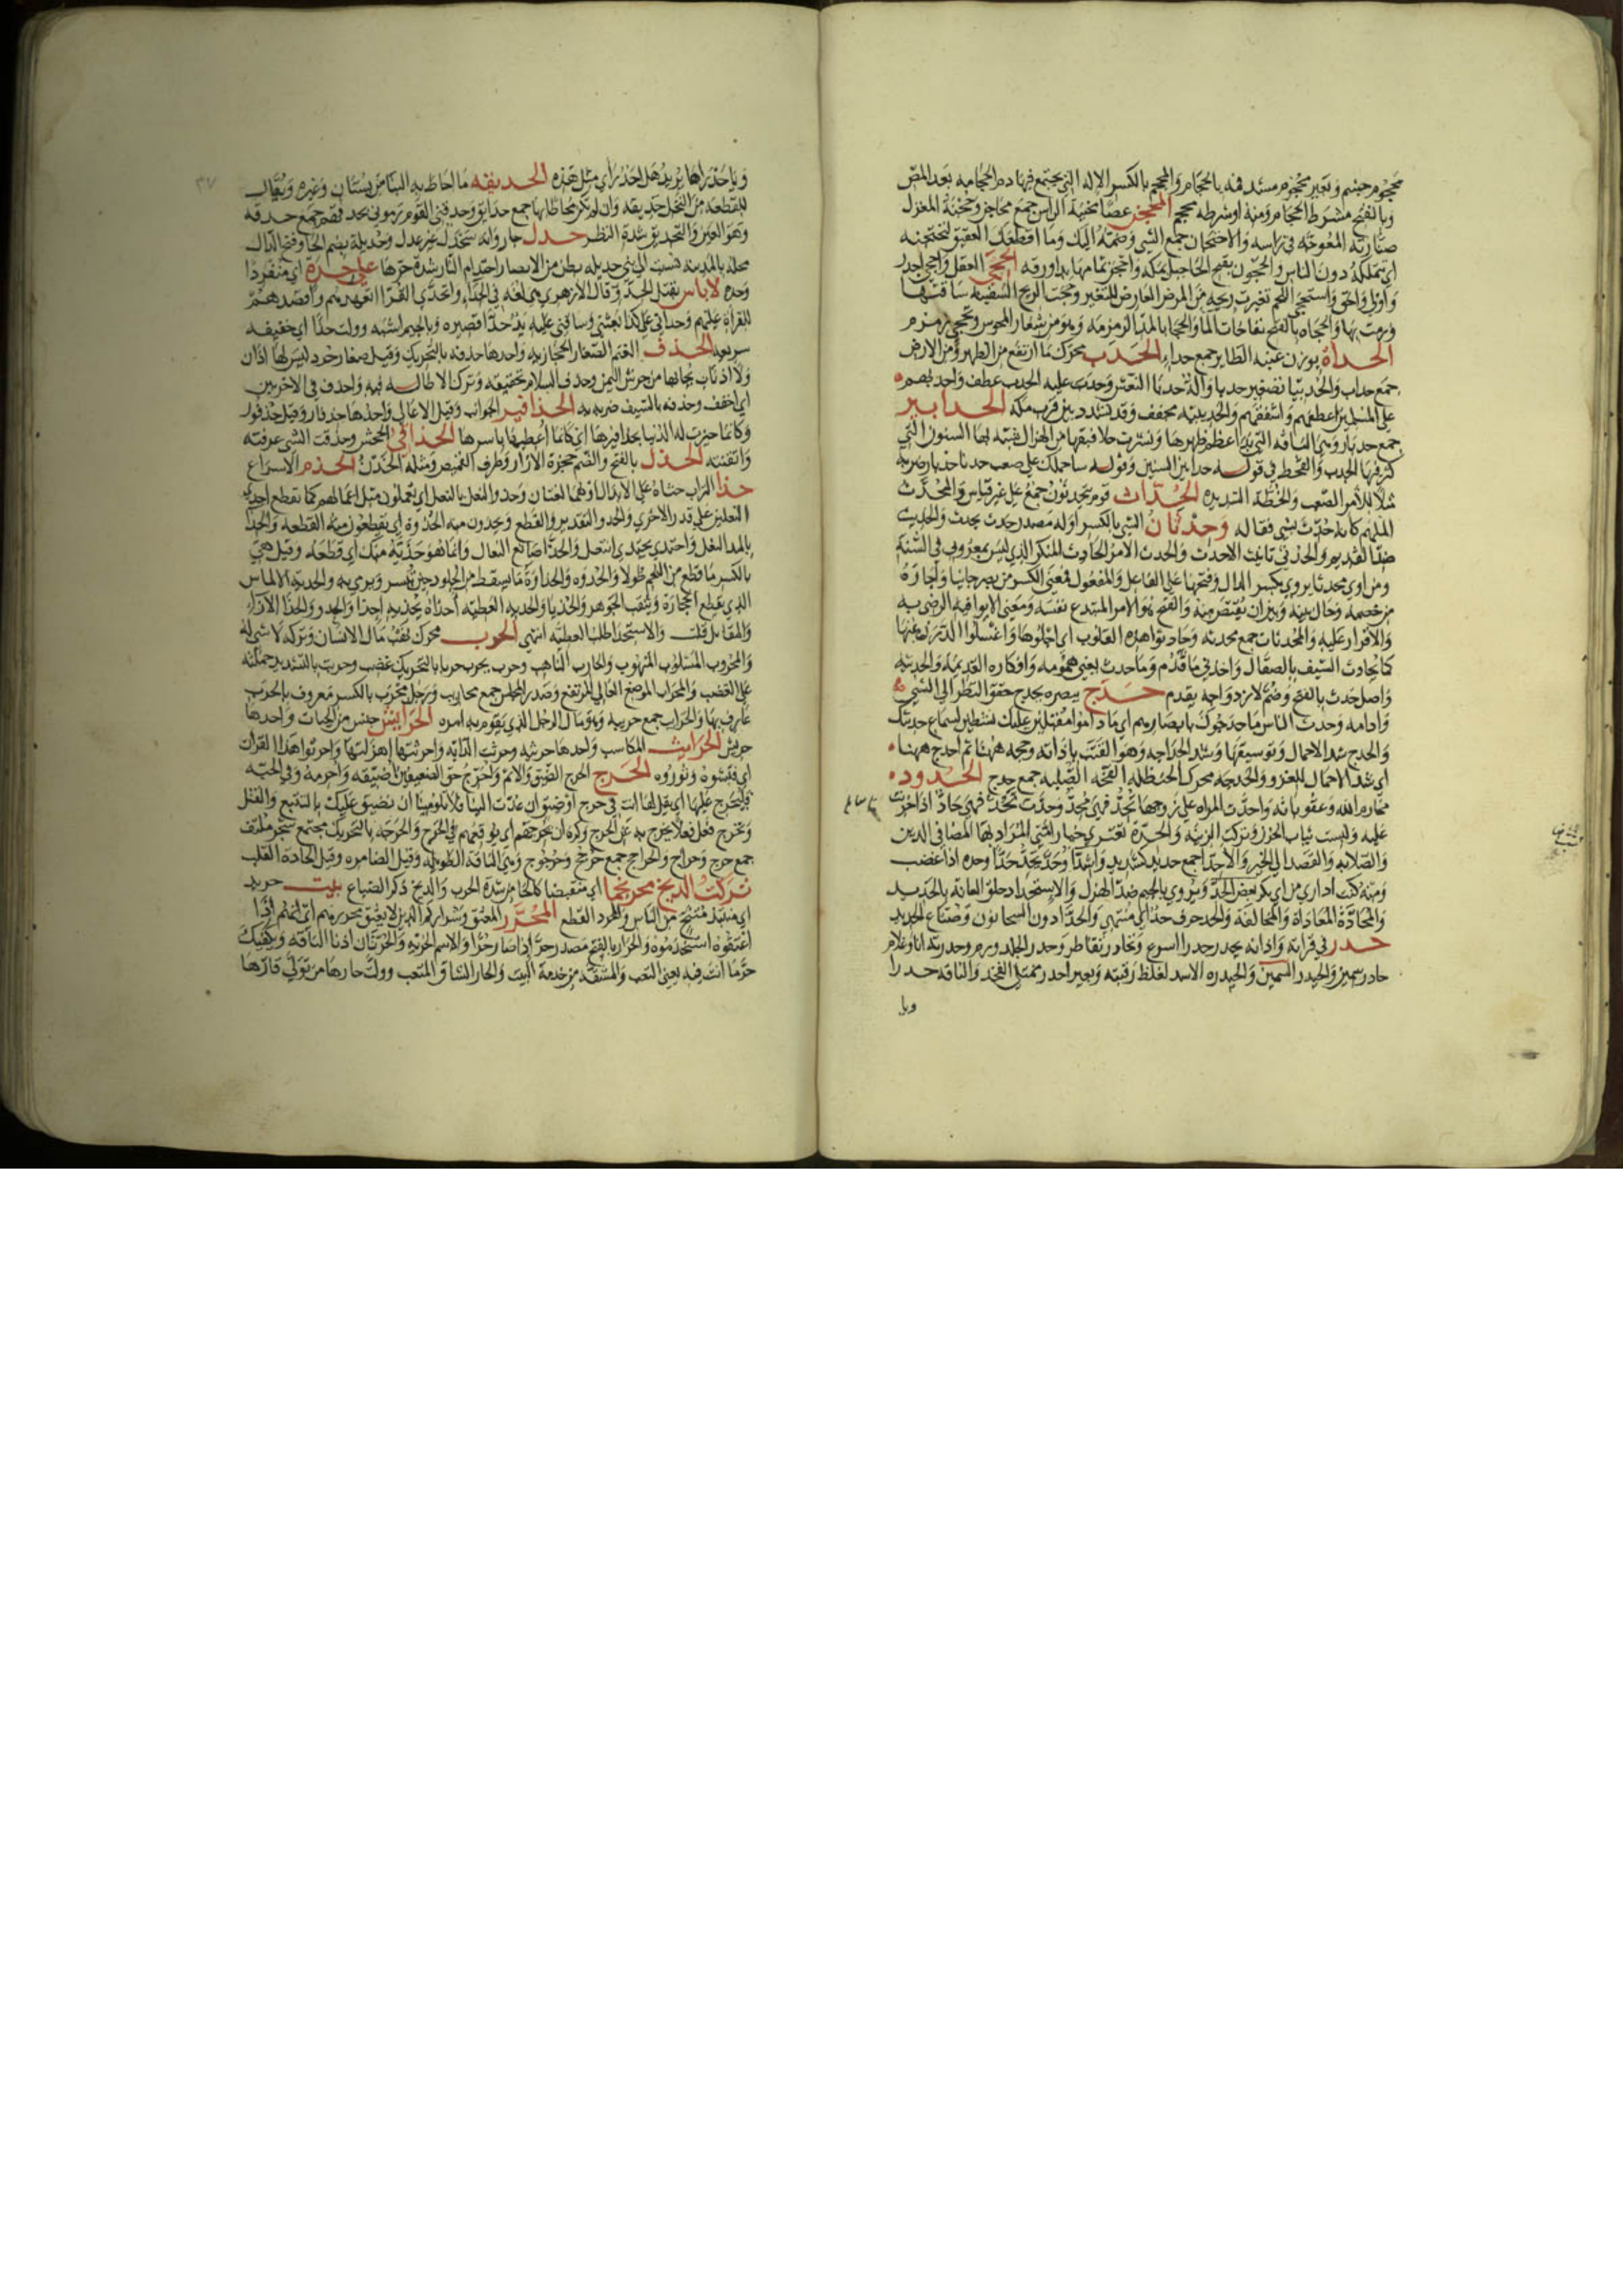 محجوم جسيم وبعير محجوم مسند فمه بالحجام والمحجم بالكسر الاله التي يجتمع فيها دم الحجامه بعد المص
وبالفتح مشرط الحجام ومنه او شرطه محجم المحجن عصا محنية الراس جمع محاجن وحجنة المغزل
صنارته المعوجه في راسه والاحتجان جمع الشي وضمته اليك وما اقطعك العقيق لتحتجنه
اي تتملكه دون الناس والحجون بفتح الحا جبل بمكه الحجى العقل واحجى اجدر
واولى واحق واستحجى اللحم تغيرت ريحه من المرض العارض للبعير وحجت الريح السفينه ساقتها
ورمت بها والحجاه بالفتح نفاخات الما والحجا بالمد الزمزمه وهو من شعار المجوس وتحجى زمزم
الحداة بوزن عنبه الطاير جمع حداء الحدب محرك ما ارتفع من الظهر ومن الارض
جمع حداب والحديبا تصغير حدبا والة حدبا النعش وحدب عليه الحدب عطف واحدبهم
على المسلمين اعطفهم واشفقهم والحديبيه مخفف وقد تشدد بئر قرب مكه الحدابير
جمع حدبار وهي الناقه التي بدا عظم ظهرها من الهزال شبه بها السنون التي
كثر فيها الجدب والقحط في قوله حدابير السنين وقوله ساحملك على صعب حدبا حدبار ضربه
مثلا للامر الصعب والخطة الشديده الحداث قوم يتحدثون جمع على غير قياس والمحدث
الملهم كانه حدث بشي فقاله وحدثان الشي بالكسر اوله مصدر حدث يحدث والحديث
ضد القديم والحدثى تانيث الاحدث والحدث الامر الحادث المنكر الذي ليس بمعروف في السنة
ومن اوى محدثا يروى بكسر الدال وفتحها على الفاعل والمفعول فمعنى الكسر من نصر جانيا واجاره
من خصمه وحال بينه وبين ان يقتص منه والفتح هو الامر المبتدع نفسه ومعنى الايوا فيه الرضى به
والاقرار عليه والمحدثات جمع محدثه وحادثوا هذه القلوب اي اجلوها واغسلوا الدرن عنها
كما يحادث السيف بالصقال واخذني ما قدم وما حدث يعني همومه وافكاره القديمه والحديثه
واصل حدث بالفتح وضم لازدواجه بقدم حدج ببصره يحدج حقق النظر الى الشي
وادامه وحدث الناس ما حدجوك بابصارهم اي ما داموا مقبلين عليك نشطين لسماع حديثك
والحدج شد الاحمال وتوسيقها وشد الحداجه وهو القتب باداته وحجه ههنا ثم احدج ههنا
اي شد الاحمال للغزو والحدجه محرك الحنظله الفجه الصلبه جمع حدج الحدود
محارم الله وعقوباته واحدت المراه على زوجها تحد فهي محد وحدت تحد فهي حاد اذا حزنت
عليه ولبست ثياب الحزن وتركت الزينه والحدة تعتري خيار امتي المراد بها المضا في الدين
والصلابه والقصد الى الخير والاحدا جمع حديد كشديد واشدا وحد يحد حدا وحده اذا غضب
ومنه كنت اداري من ابي بكر بعض الحد ويروى بالجيم ضد الهزل والاستحداد حلق العانه بالحديد
والمحادة المعاداة والمخالفه والحد حرف منتهى والحدادون السجانون وصناع الحديد
حدر في قراته واذانه يحدر حدرا اسرع وتحادر تقاطر وحدر الجلد ورم وحدرته انا وغلام
حادر سمين والحيدر السمين والحيدره الاسد لغلظ رقبته وبعير احدر ممتلي الفخذ والناقه حدرا
ويا
ويا حدراها يريد هل احد راى مثل هذه الحديقه ما احاط به البنا من بستان وغيره ويقال
للقطعه من النخل حديقه وان لم يكن محاطا بها جمع حدايق وحدقني القوم رموني بحدقهم جمع حدقه
وهو العين والتحديق شدة النظر حدل جار وانه يحدل غير عدل وحديلة بضم الحا وفتح الدال
محله بالمدينه نسبت الى بني حديله بطن من الانصار احتدام النار شدة حرها على حدة اي منفردا
وحده لا باس بقتل الحدو قال الازهري هي لغه في الحدا وتحدى القرا اتعهدهم واقصدهم
للقراة عليهم وحداني على كذا بعثني وساقني عليه
سريعه الحذف الغنم الصغار الحجازيه واحدها حذفه بالتحريك وقيل صغار جرد ليس لها اذان
ولا اذناب يجابها من جرش اليمن وحذف السلام تخفيفه وترك الاطاله فيه واحذف في الاخريين
اي اخفف وحذفه بالسيف ضربه به الحذافير الجوانب وقيل الاعالي واحدها حذفار وقيل حذفور
وكانما حيزت له الدنيا بحذافيرها اي كانما اعطيها باسرها الحذاقي الجحش وحذقت الشي عرفته
واتقنته الحذل بالفتح والضم حجزة الازار وطرف القميص ومثله الحذن الحذم الاسراع
حذا التراب حثاه على الابدال او هما لغتان وحذو النعل بالنعل اي تعملون مثل اعمالهم كما تقطع احدى
النعلين على قدر الاخرى والحذو التقدير والقطع ويحذون منه الحذوة اي يقطعون منه القطعه والحذا
بالمد النعل واحتذى يحتذي انتعل والحذا صانع النعال وانما هو حذية منك اي قطعه وقيل هي
بالكسر ما قطع من اللحم طولا والحذوه والحذاوة ما يسقط من الجلود حين تبشر ويرمى به والحذيه الالماس
الذي يقطع الحجارة ويثقب الجوهر والحذيا والحذيه العطيه احذاه يحذيه احذا والحذو والحذا الازاء
والمقابل قلت والاستحذا طلب العطيه انتهى الحرب محرك نهب مال الانسان وتركه لا شي له
والمحروب المسلوب المنهوب والحارب الناهب وحرب يحرب حربا بالتحريك غضب وحربت بالتشديد حملته
على الغضب والمحراب الموضع العالي المرتفع وصدر المجلس جمع محاريب ورجل محرب بالكسر معروف بالحرب
عارف بها والحرايب جمع حريبه وهو مال الرجل الذي يقوم به امره الحرابيش جنس من الحيات واحدها
حربيش الحرايث المكاسب واحدها حريثه وحرثت الدابه واحرثتها اهزلتها واحرثوا هذا القران
اي فتشوه وثوروه الحرج الحرج الضيق والاثم واحرج حق الضعيفين اضيقه واحرمه وفي الحيه
فليحرج عليها اي يقل لها انت في حرج او ضيق ان عدت الينا فلا تلومينا ان نضيق عليك بالتتبع والقتل
وتحرج فعل فعلا يخرج به عن الحرج وكره ان يحرجهم اي يوقعهم في الحرج والحرجه بالتحريك مجتمع شجر ملتف
جمع حرج وحراج والحراجج جمع حرجج وحرجوج وهي الناقه الطويله وقيل الضامره وقيل الحادة القلب
تركت الذيخ محرنجما اي منقبضا كالحا من شدة الحرب والذيخ ذكر الضباع بيت حريد
اي منتبذ متنح عن الناس والحرد القطع المحرر المعتق وشراركم الذين لا يعتق محررهم اي انهم اذا
اعتقوه استخدموه والحرار بالفتح مصدر حر اذا صار حرا والاسم الحريه والحرتان اذنا الناقه ويكفيك
حر ما انت فيه يعني التعب والمشقه من خدمة البيت والحار الشاق المتعب وول حارها من تولى قارها